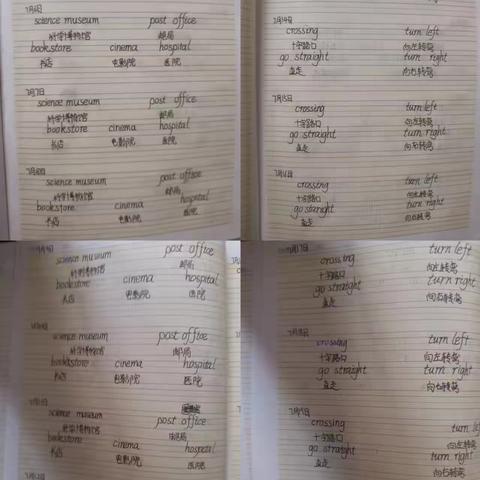 7月6日
science museum post office
科学博物馆 邮局
bookstore cinema hospital
书店 电影院 医院
7月7日
science museum post office
科学博物馆 邮局
bookstore cinema hospital
书店 电影院 医院
7月8日
science museum post office
科学博物馆 邮局
bookstore cinema hospital
书店 电影院 医院
7月14日
crossing turn left
十字路口 向左转弯
go straight turn right
直走 向右转弯
7月15日
crossing turn left
十字路口 向左转弯
go straight turn right
直走 向右转弯
crossing turn left
十字路口 向左转弯
go straight turn right
直走 向右转弯
7月9日
science museum post office
科学博物馆 邮局
bookstore cinema hospital
书店 电影院 医院
science museum post office
科学博物馆 邮局
booktstore cinema hospital
书店 电影院 医院
science museum post office
科学博物馆
bookstore cinema hospital
书店 电影院 医院
7月17日
crossing turn left
十字路口 向左转弯
go straight turn right
直走 向右转弯
7月18日
crossing turn left
十字路口 向左转弯
go straight turn right
直走 向右转弯
crossing turn left
十字路口 向左转弯
go straight turn right
直走 向右转弯